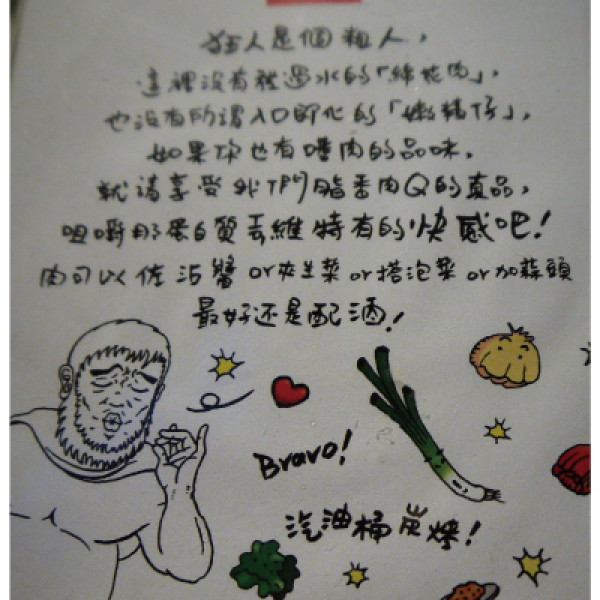 狂人是個粗人，
這裡沒有被過水的「綿花肉」，
也沒有所謂入口即化的「嫩精仔」，
如果你也有嗜肉的品味，
就請享受我們脂香肉Q的真品，
咀嚼那蛋白質舌纖維特有的快感吧！
肉可以佐沾醬or夾生菜or搭泡菜or加蒜頭
最好还是配酒！
Bravo!
汽油桶炭烤！